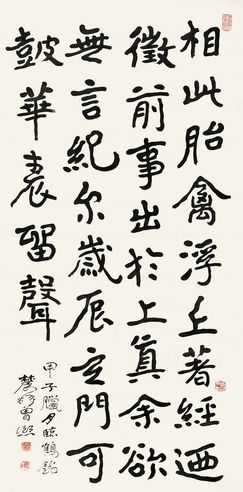 相此胎禽浮丘著經迺
徵前事出於上真余欲
無言紀尔歲辰玄門可
鼓華表留聲
甲子臘月臨鶴銘
農髯曾熙